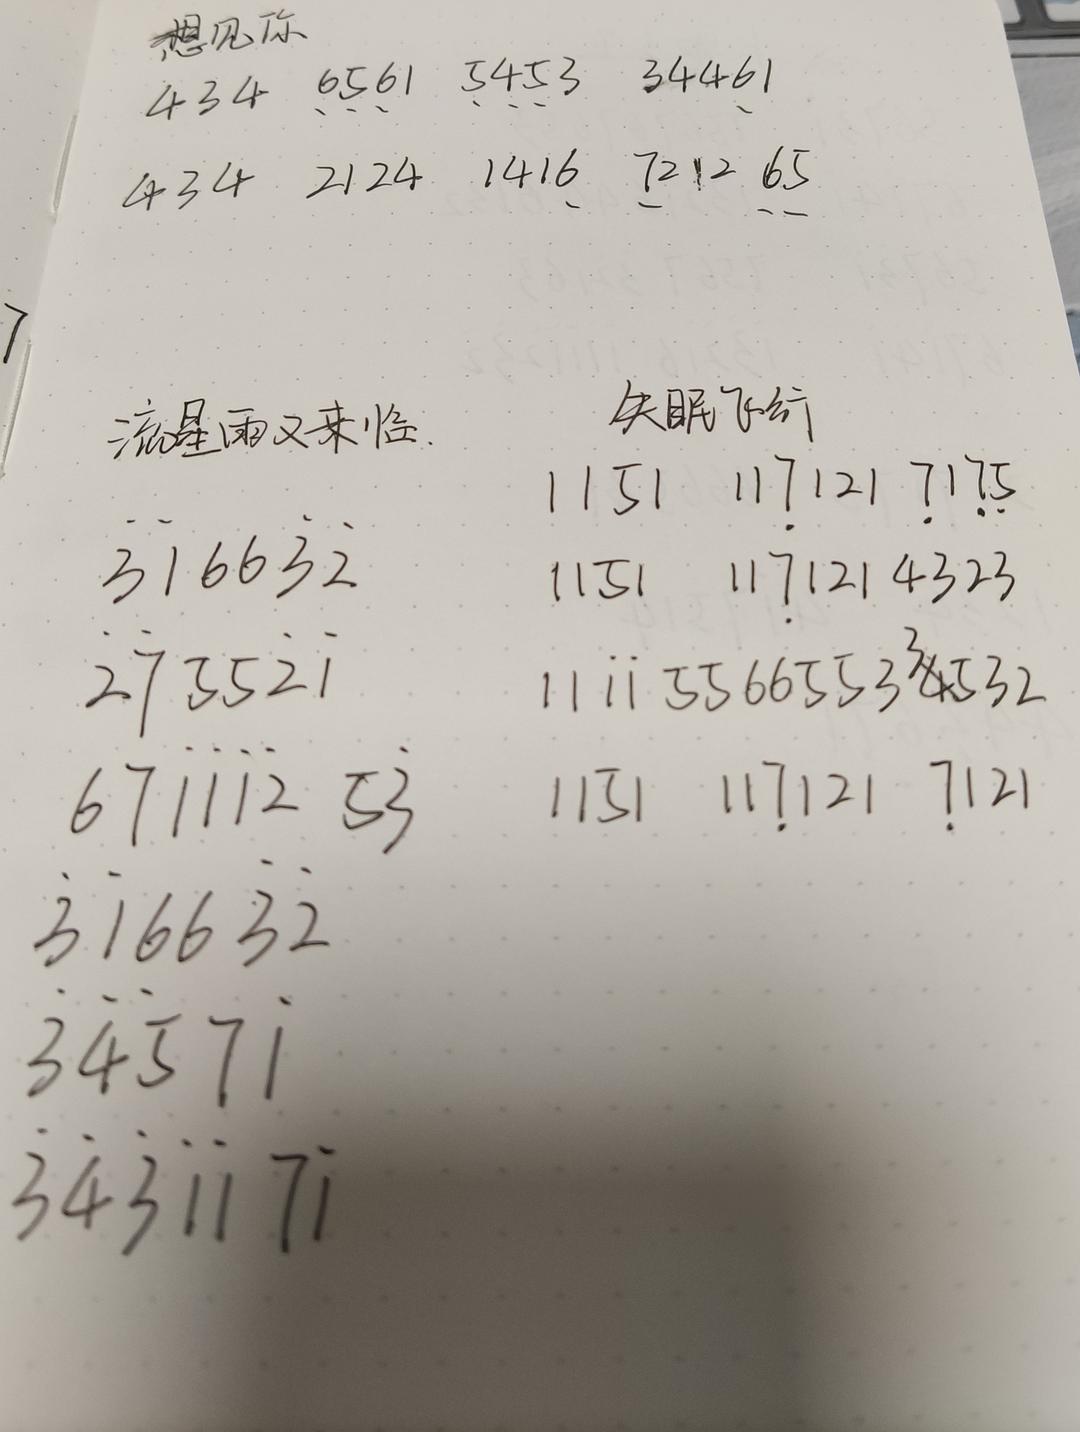 想见你
434 6̣5̣6̣1 5̣4̣5̣3 3446̣1
434 2124 1416̣ 7̣212 6̣5̣
7
流星雨又来临.
3̇1̇663̇2̇
2̇7̇552̇1̇
671̇1̇1̇2̇ 53̇
3̇1̇663̇2̇
3̇4̇5̇71̇
3̇4̇3̇1̇1̇71̇
失眠飞行
1151 117̣121 7̣17̣5̣
1151 117̣121 4323
111̇1̇556655334532
1151 117̣121 7̣121